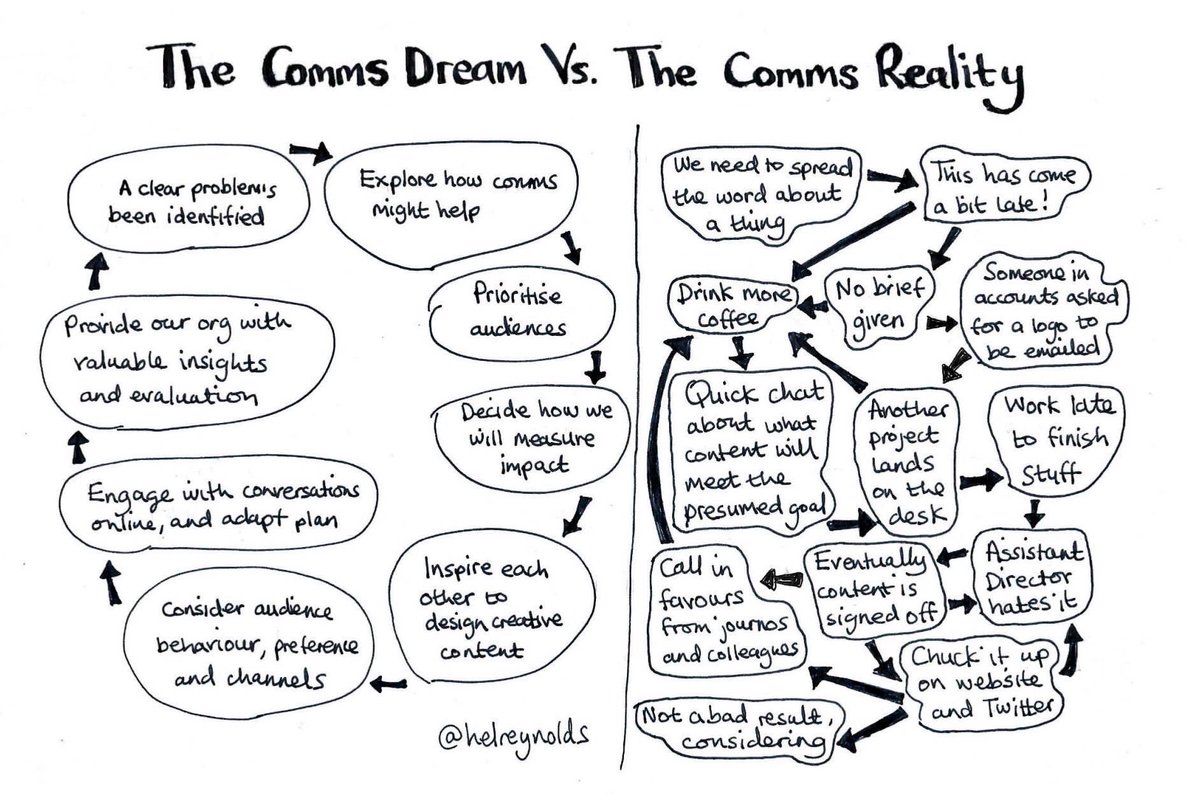 The Comms Dream Vs. The Comms Reality
A clear problem's
been idenfified
Explore how comms
might help
Prioritise
audiences
Decide how we
will measure
impact
Inspire each
other to
design creative
content
Consider audience
behaviour, preference
and channels
Engage with conversations
online, and adapt plan
Provide our org with
valuable insights
and evaluation
@helreynolds
We need to spread
the word about
a thing
This has come
a bit late!
Drink more
coffee
No brief
given
Someone in
accounts asked
for a logo to
be emailed
Quick chat
about what
content will
meet the
presumed goal
Another
project
lands
on the
desk
Work late
to finish
stuff
Call in
favours
from journos
and colleagues
Eventually
content is
signed off
Assistant
Director
hates it
Chuck it up
on website
and Twitter
Not a bad result,
considering